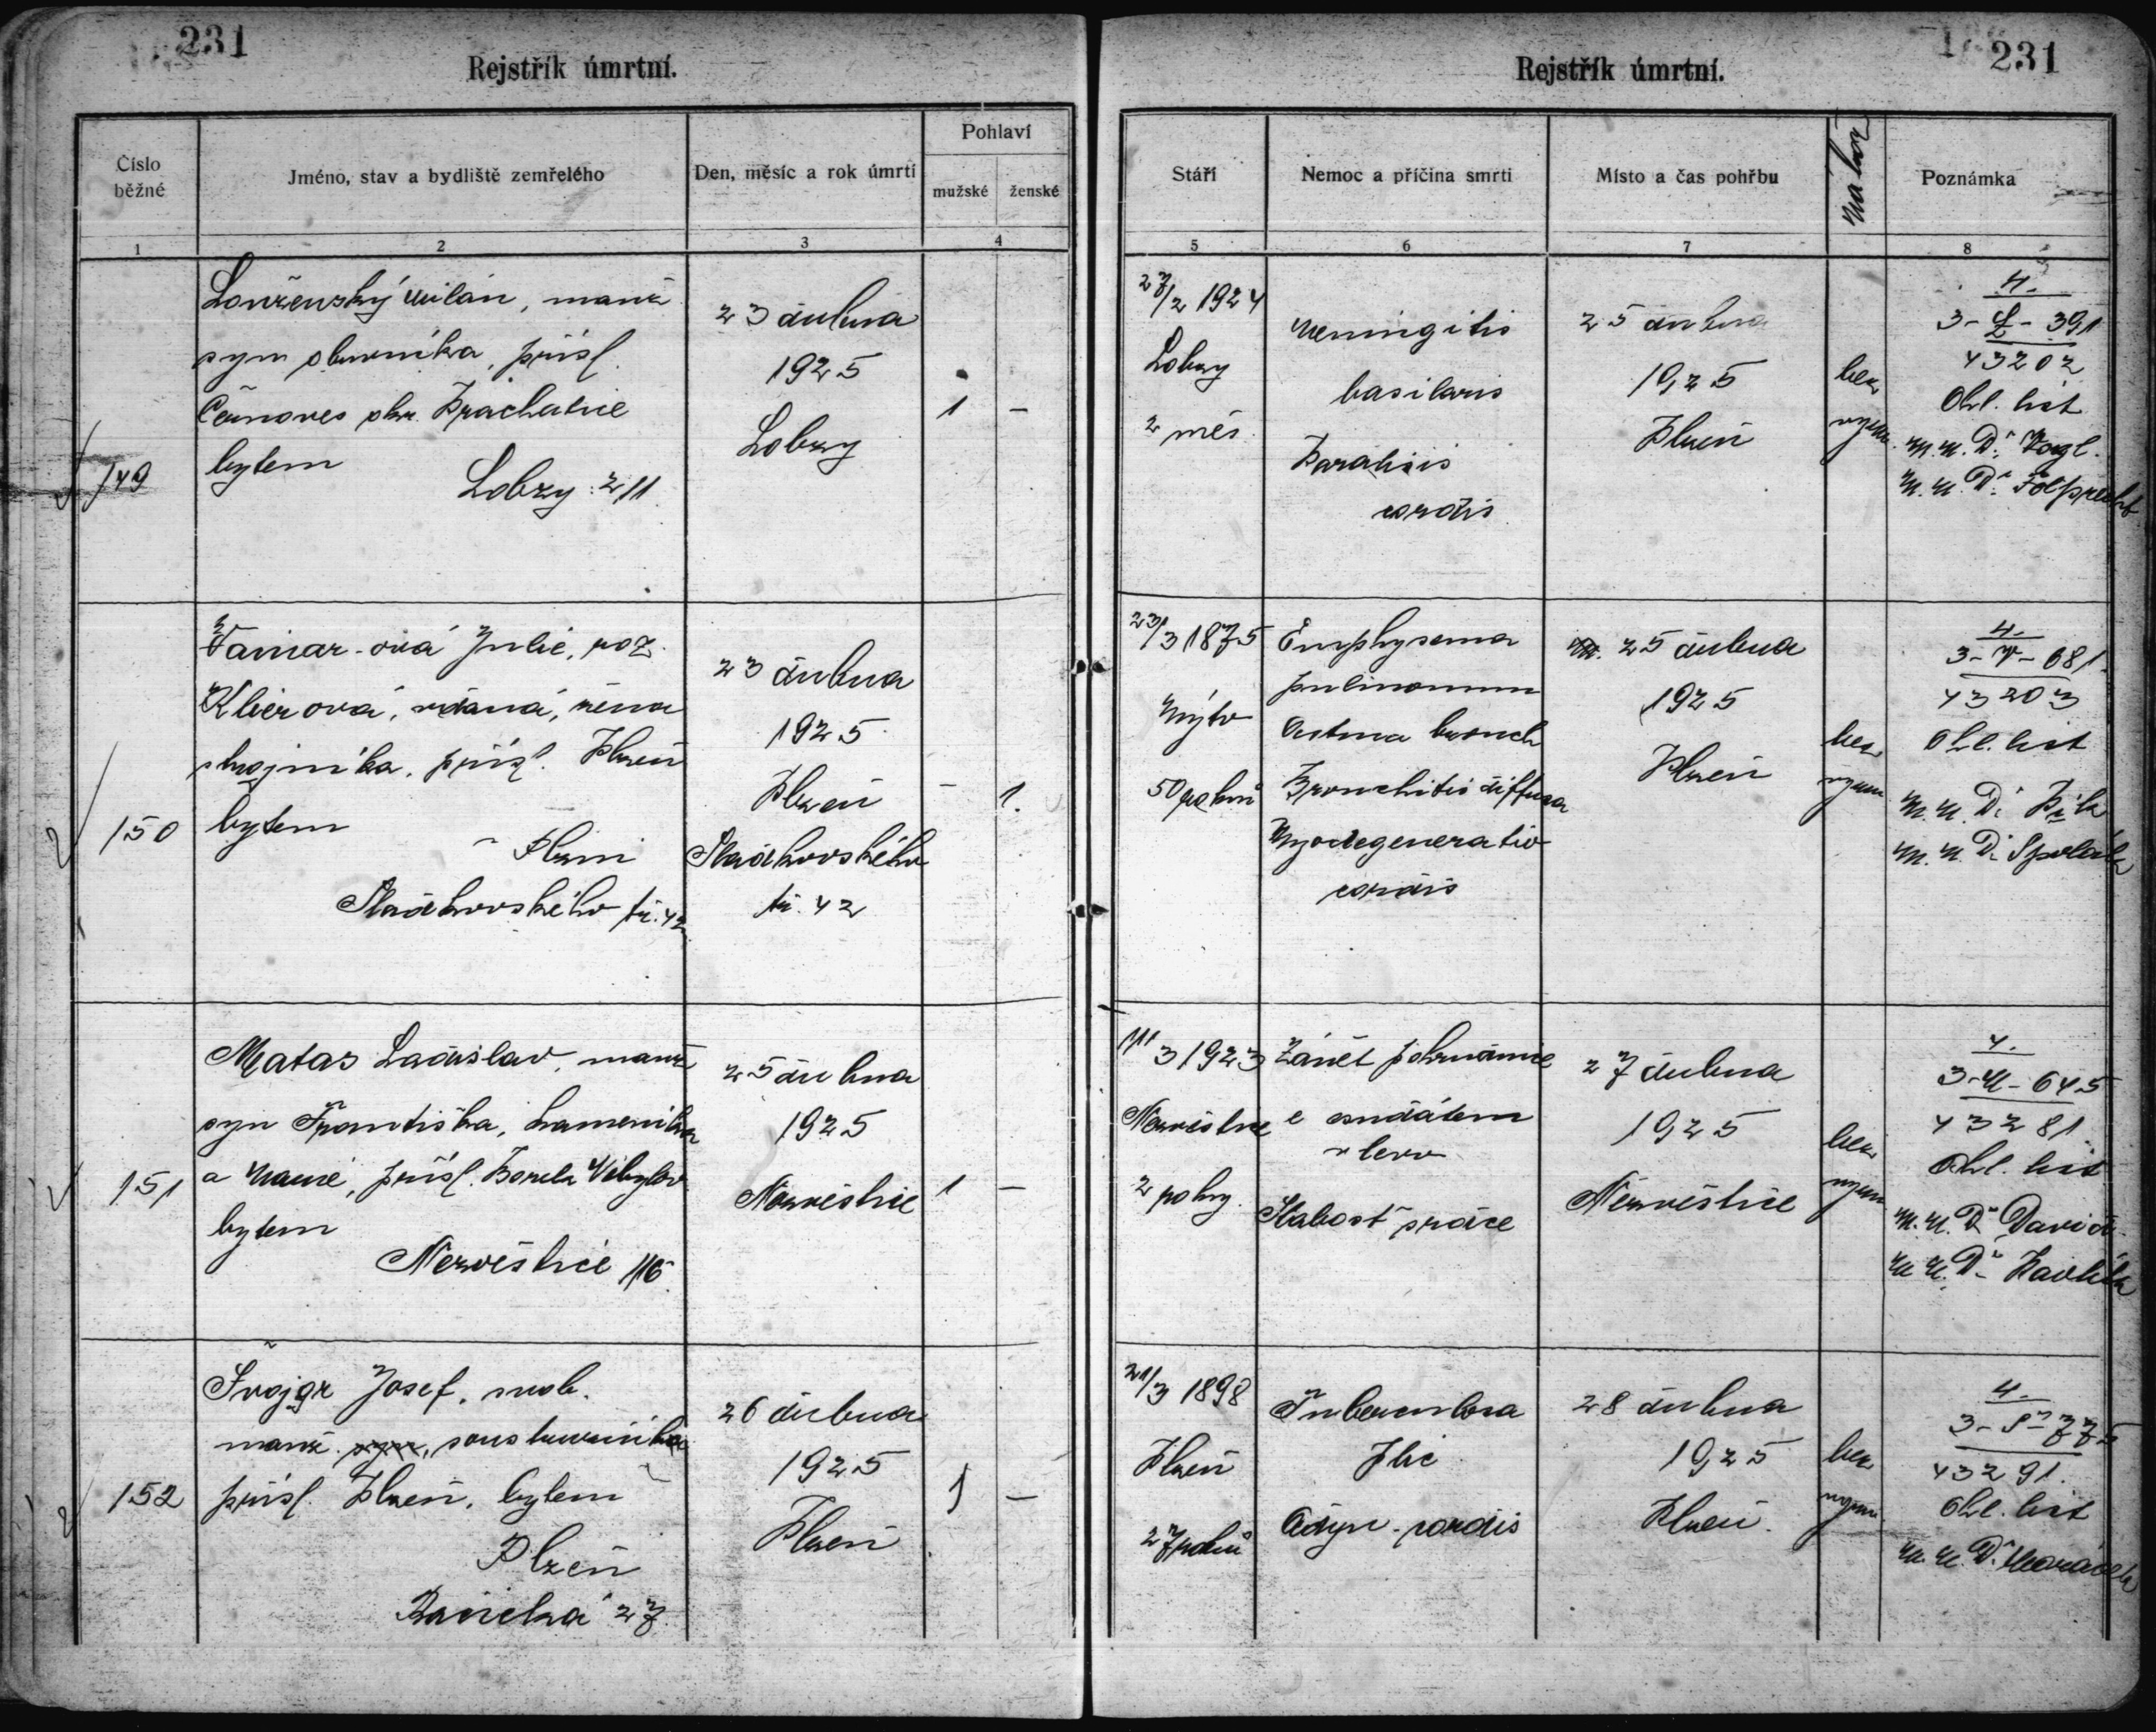 231
Rejstřík úmrtní.
Číslo běžné
Jméno, stav a bydliště zemřelého
Den, měsíc a rok úmrtí
Pohlaví
mužské
ženské
1
2
3
4
149
Louženský Milán, manž
syn obuvníka, přísl.
Černoves okr. Prachatice
bytem
Lobzy 211
23 dubna
1925
Lobzy
1
–
150
Vaivar-ová Julie, roz.
Klierova, vdaná, žena
strojníka, přísl. Plzeň
bytem
Plzni
Sladkovského tř. 42
23 dubna
1925
Plzeň
Sladkovského
tř. 42
–
1.
151
Matas Ladislav, manž
syn Františka, kameníka
a Marie, přísl.
bytem
Nezvěstice 116
25 dubna
1925
Nezvěstice
1
–
152
Švojgr Josef, svob.
manž. syn, soustružníka
přísl. Plzeň, bytem
Plzeň
27
26 dubna
1925
Plzeň
1
–
Rejstřík úmrtní.
231
Stáří
Nemoc a příčina smrti
Místo a čas pohřbu
Nábož
Poznámka
5
6
7
8
27/2 1924
Lobzy
2 měs.
Meningitis
basilaris
Paralisis
cordis
25 dubna
1925
Plzeň
bez
vyzn.
4.
3-L-391
43202
Ohl. list
M.U.Dr. Vogl.
M.U.Dr. Folprecht
23/3 1875
Mýto
50 roků
Emphysema
pulmonum
Astma bronch
Bronchitis diffusa
Myodegeneratio
cordis
25 dubna
1925
Plzeň
bez
vyzn
4.
3-V-681.
43203
Ohl. list
M.U.Dr
M.U.Dr
3 1923
Nezvěstice
2 roky.
Zánět pohrudnice
s exsudátem
vlevo
Slabost srdce
27 dubna
1925
Nezvěstice
bez
vyzn
4.
3-M-645
43281
Ohl. list
M.U.Dr David
M.U.Dr Havlík
21/3 1898
Plzeň
27 roků
Tuberculosa
Plic
Adyn. cordis
28 dubna
1925
Plzeň.
bez
vyzn
4.
3-S-775
43291.
Ohl. list
M.U.Dr. Moravec